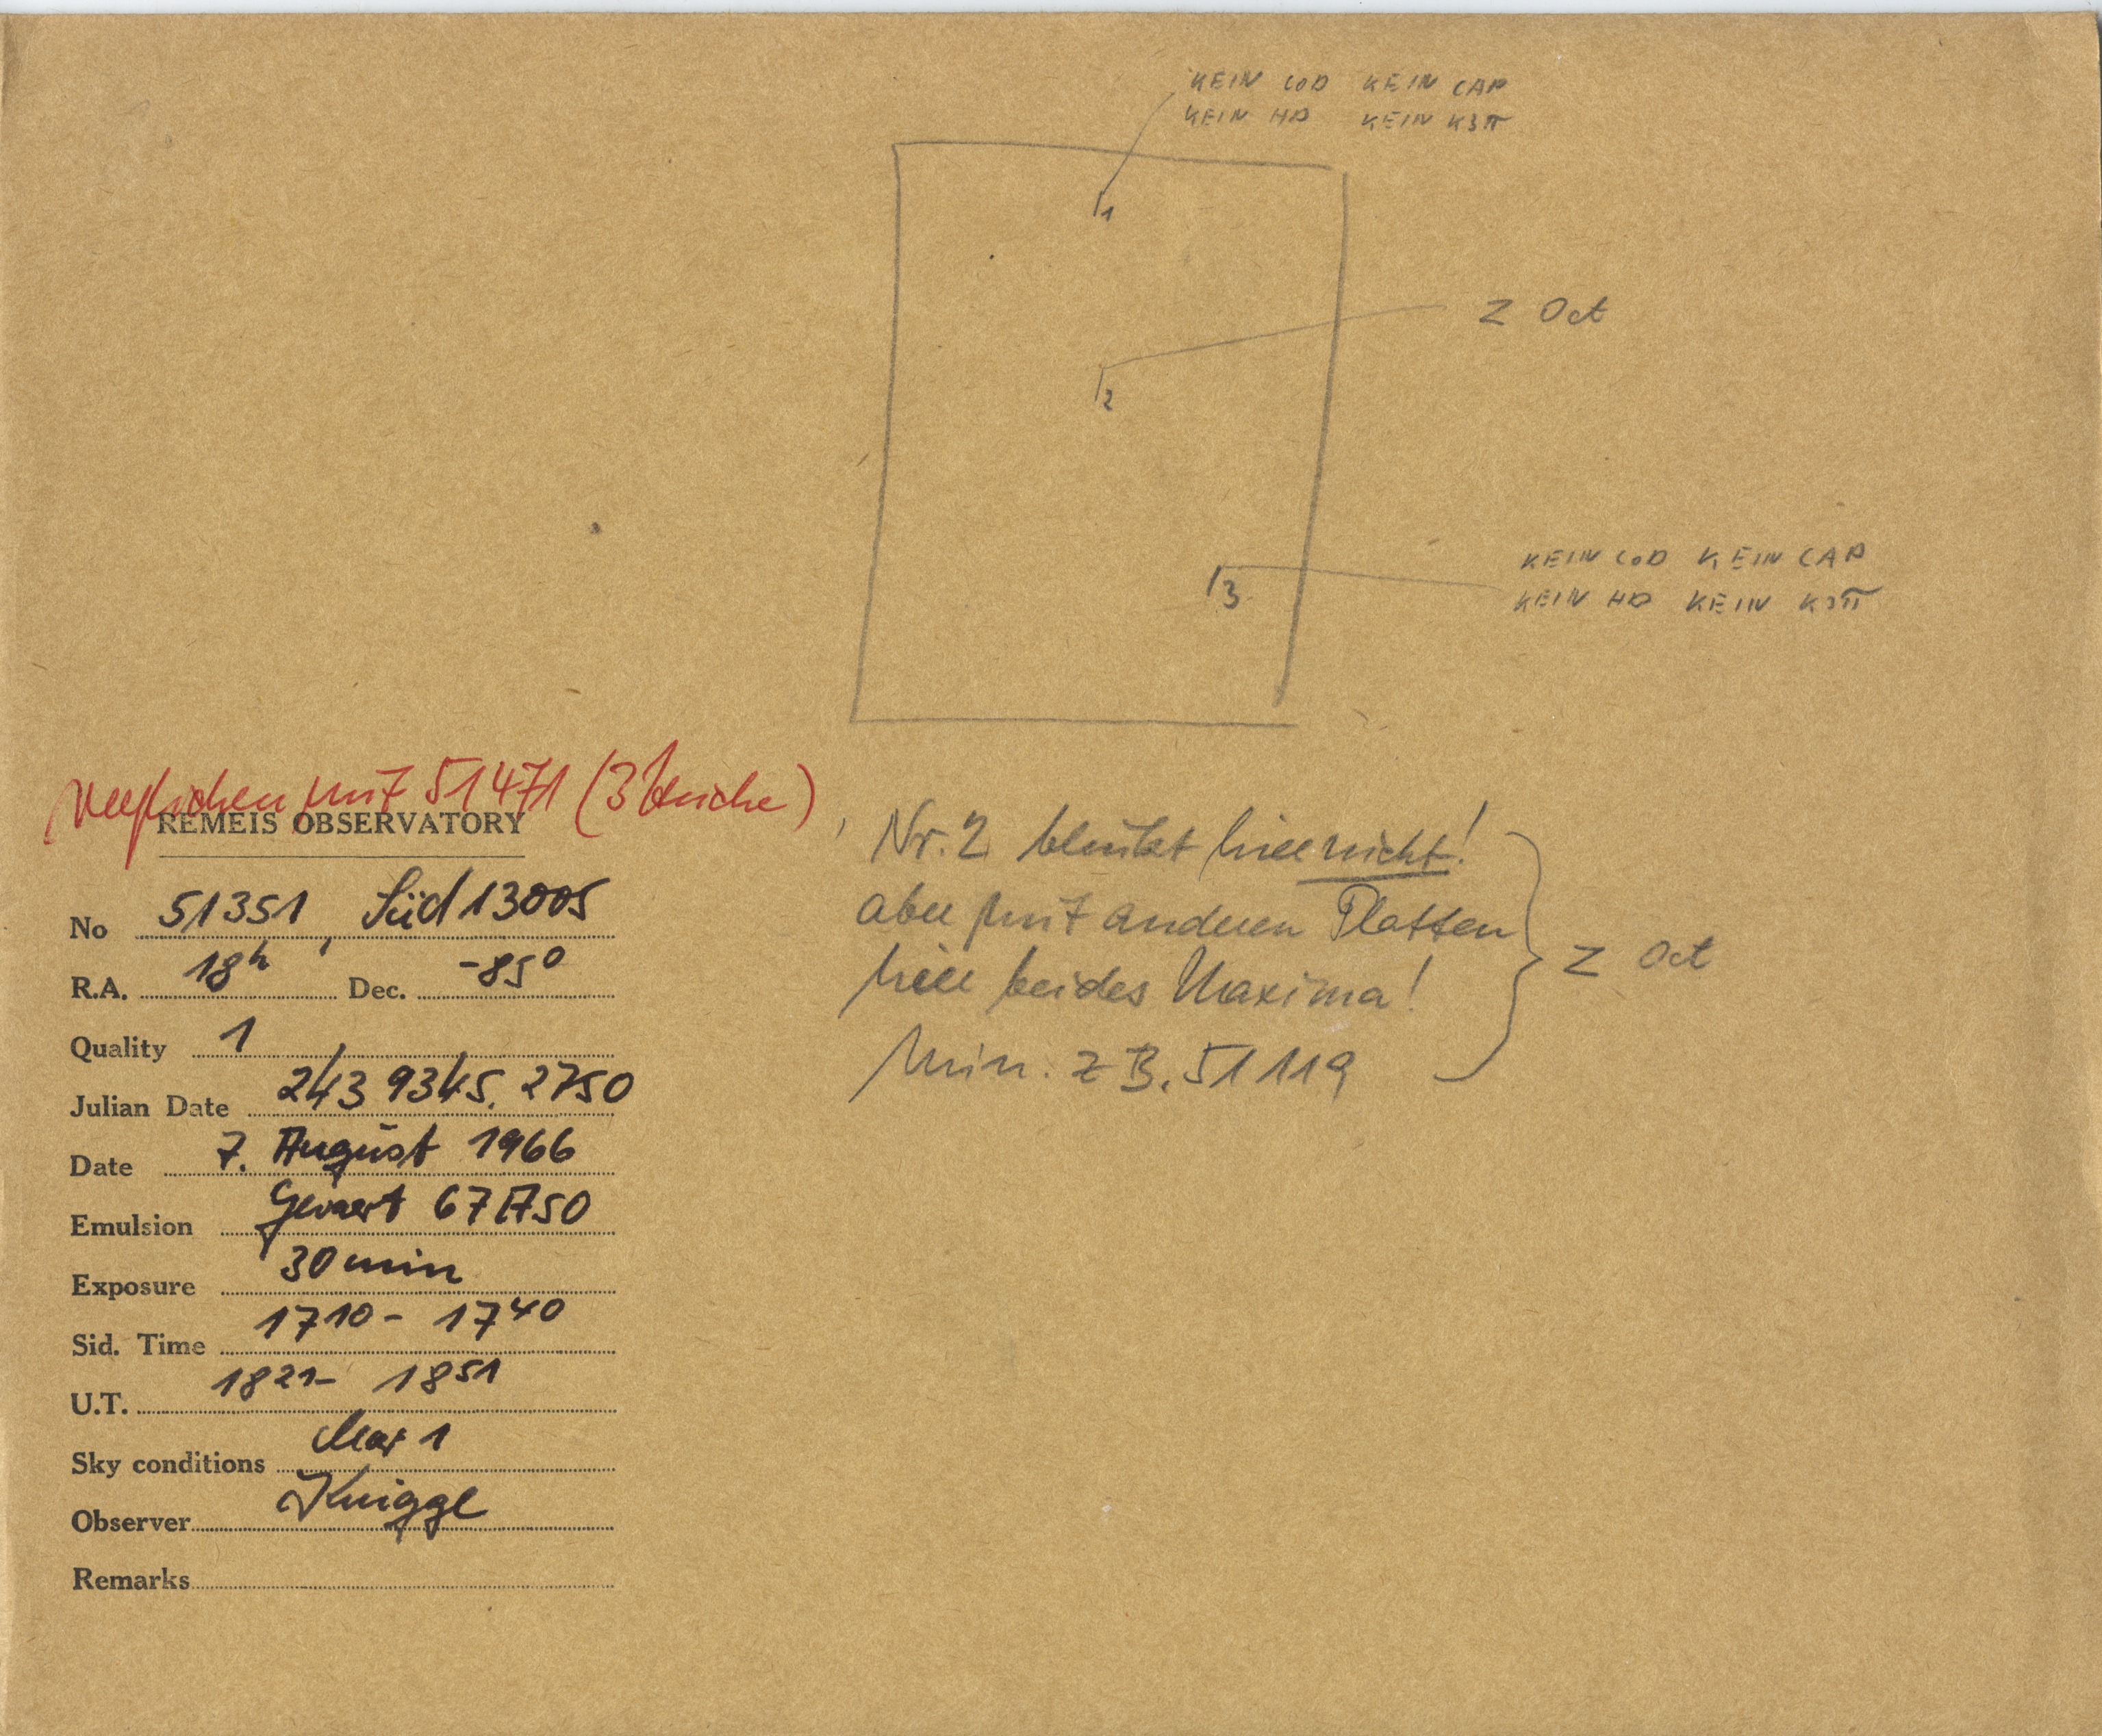 KEIN COD KEIN CAP
KEIN HD KEIN K3π
1
Z Oct
2
KEIN COD KEIN CAP
KEIN HD KEIN K3π
3
verglichen mit 51471 (3 Striche)
REMEIS OBSERVATORY
No 51351, Süd 13005
R.A. 18h Dec. -85°
Quality 1
Julian Date 243 9345.2750
Date 7. August 1966
Emulsion Gevaert 67A50
Exposure 30 min
Sid. Time 17 10 - 17 40
U.T. 18 21 - 18 51
Sky conditions klar 1
Observer Knigge
Remarks
Nr. 2 blinkt hier nicht!
aber mit anderen Platten
hier beides Maxima!
Min. z B. 51119
Z Oct